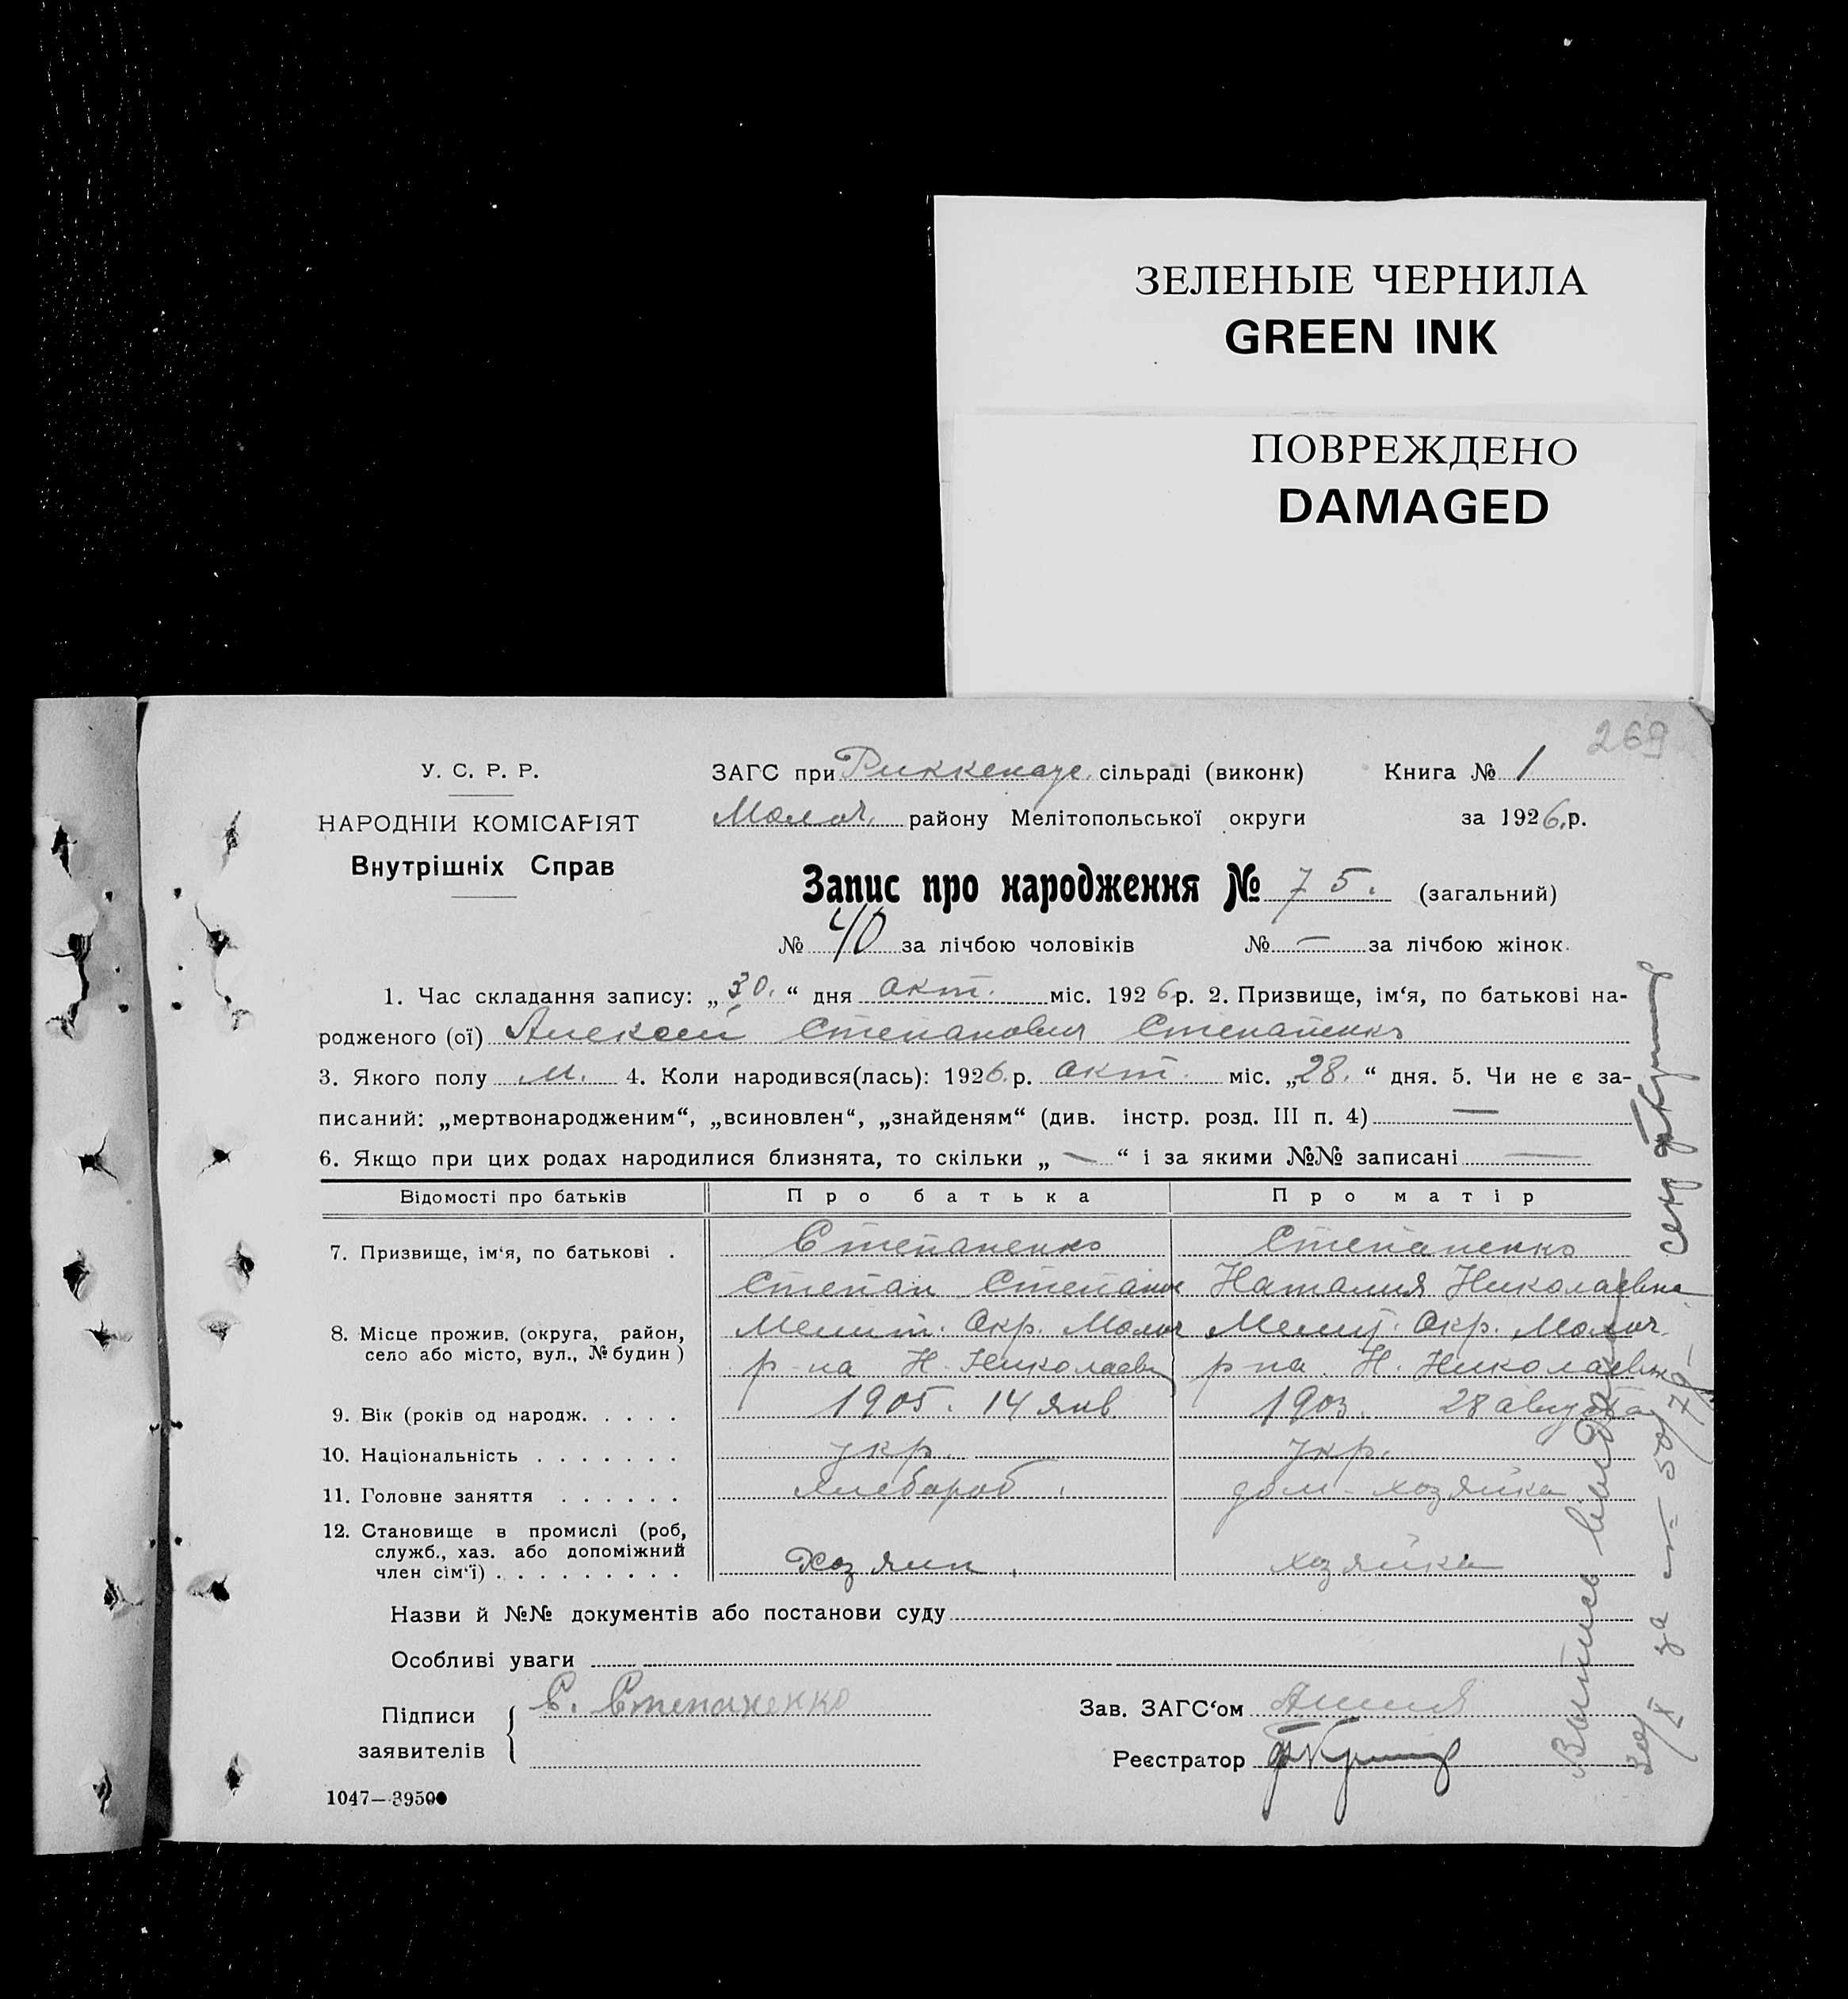 ЗЕЛЕНЫЕ ЧЕРНИЛА
GREEN INK
ПОВРЕЖДЕНО
DAMAGED
269
У. С. Р. Р.
НАРОДНІЙ КОМІСАРІЯТ
Внутрішніх Справ
ЗАГС при Риккенауе. сільраді (виконк) Книга № 1
Молоч. району Мелітопольської округи за 1926.р.
Запис про народження № 75. (загальний)
№ 40 за лічбою чоловіків № — за лічбою жінок.
1. Час складання запису: „30.“ дня окт. міс. 1926 р. 2. Призвище, ім‘я, по батькові на-
родженого (ої) Алексей Степанович Степаненко
3. Якого полу м. 4. Коли народився(лась): 1926.р. окт. міс. „28.“ дня. 5. Чи не є за-
писаний: „мертвонародженим“, „всиновлен“, „знайденям“ (див. інстр. розд. III п. 4) —
6. Якщо при цих родах народилися близнята, то скільки „ — “ і за якими №№ записані —
Відомості про батьків Про батька Про матір
7. Призвище, ім‘я, по батькові . Степаненко Степаненко
Степан Степанов Наталия Николаевна
8. Місце прожив. (округа, район, село або місто, вул., № будин) Мелит. Окр. Молоч Мелит. Окр. Молоч.
р-на Н. Николаевк р-на. Н. Николаевка
9. Вік (років од народж. . . . . 1905. 14 янв. 1903. 28 августа
10. Національність . . . . . . . укр. укр.
11. Головне заняття . . . . . . Хлебороб. дом-хозяйка
12. Становище в промислі (роб, служб., хаз. або допоміжний член сім‘ї) . . . . . . . . . Хозяин. хозяйка
Назви й №№ документів або постанови суду
Особливі уваги
Підписи заявителів С. Степаненко
Зав. ЗАГС‘ом
Реєстратор
1047—39500
Выпись выдана
30/X за № 50/79
сек